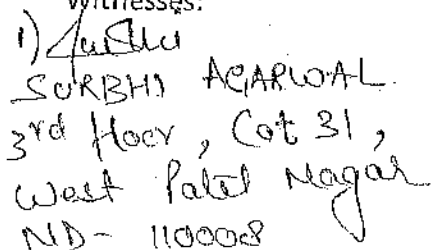 Witnesses:
1)
SURBHI AGARWAL
3rd Floor, Cot 31,
West Patel Nagar
ND- 110008